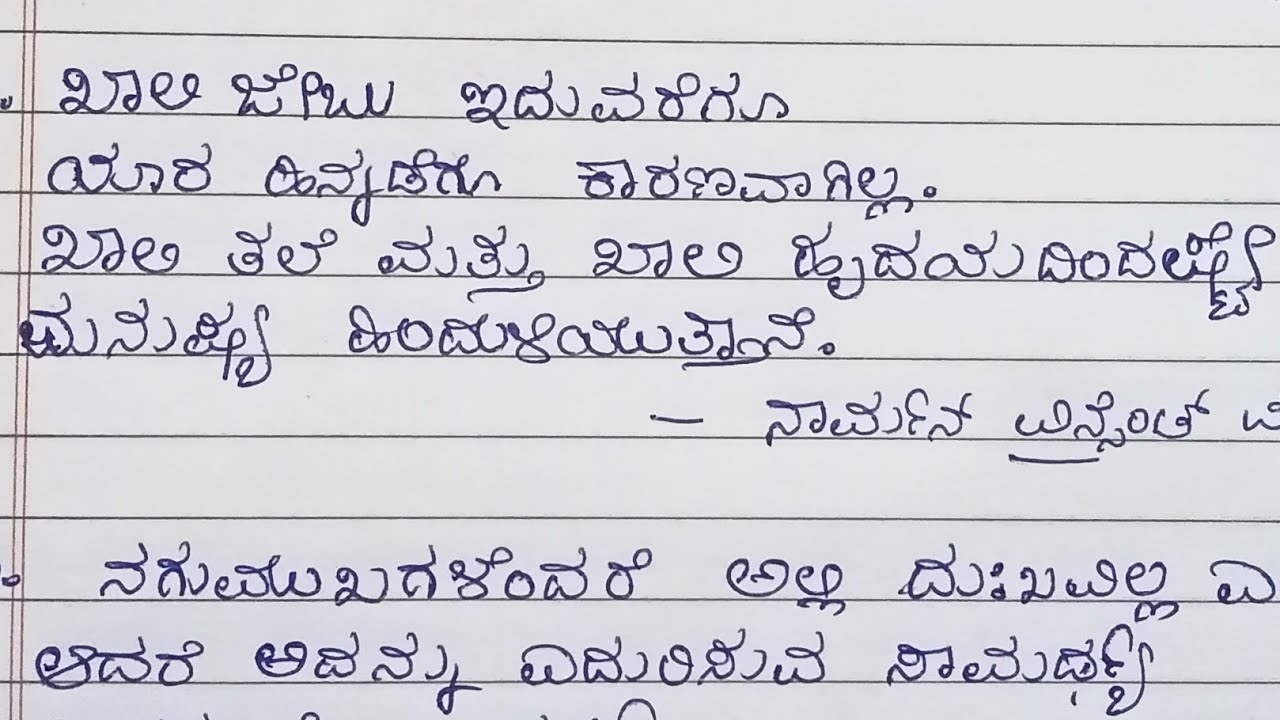 ಖಾಲಿ ಜೇಬು ಇದುವರೆಗೂ
ಯಾರ ಹಿನ್ನಡೆಗೂ ಕಾರಣವಾಗಿಲ್ಲ.
ಖಾಲಿ ತಲೆ ಮತ್ತು ಖಾಲಿ ಹೃದಯದಿಂದಷ್ಟೆ
ಮನುಷ್ಯ ಹಿಂದುಳಿಯುತ್ತಾನೆ.
— ನಾರ್ಮನ್ ವಿನ್ಸೆಂಟ್
ನಗುಮುಖಗಳೆಂದರೆ ಅಲ್ಲಿ ದುಃಖವಿಲ್ಲ
ಆದರೆ ಅದನ್ನು ಎದುರಿಸುವ ಸಾಮರ್ಥ್ಯ